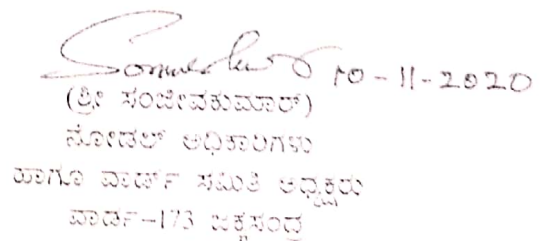 10-11-2020
(ಶ್ರೀ ಸಂಜೀವಕುಮಾರ್)
ನೋಡಲ್ ಅಧಿಕಾರಿಗಳು
ಹಾಗೂ ವಾರ್ಡ್ ಸಮಿತಿ ಅಧ್ಯಕ್ಷರು
ವಾರ್ಡ್-173 ಜಕ್ಕಸಂದ್ರ